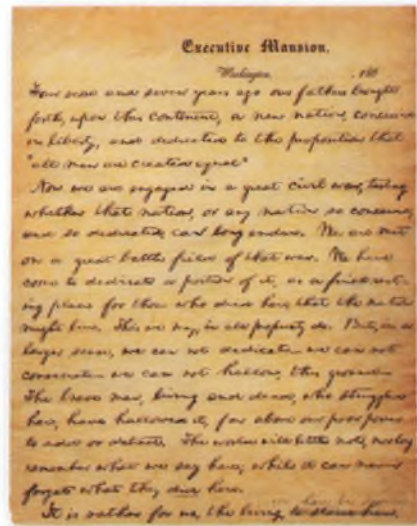 Executive Mansion,
Washington, , 186
Four score and seven years ago our fathers brought
forth, upon this continent, a new nation, conceived
in liberty, and dedicated to the proposition that
"all men are created equal"
Now we are engaged in a great civil war, testing
whether that nation, or any nation so conceived,
and so dedicated, can long endure. We are met
on a great battle field of that war. We have
come to dedicate a portion of it, as a final rest-
ing place for those who died here, that the nation
might live. This we may, in all propriety do. But, in a
larger sense, we can not dedicate we can not
consecrate we can not hallow, this ground
The brave men, living and dead, who struggled
here, have hallowed it, far above our poor power
to add or detract. The world will little note, nor long
remember what we say here; while it can never
forget what they did here.
It is rather for us, the living, to stand here,